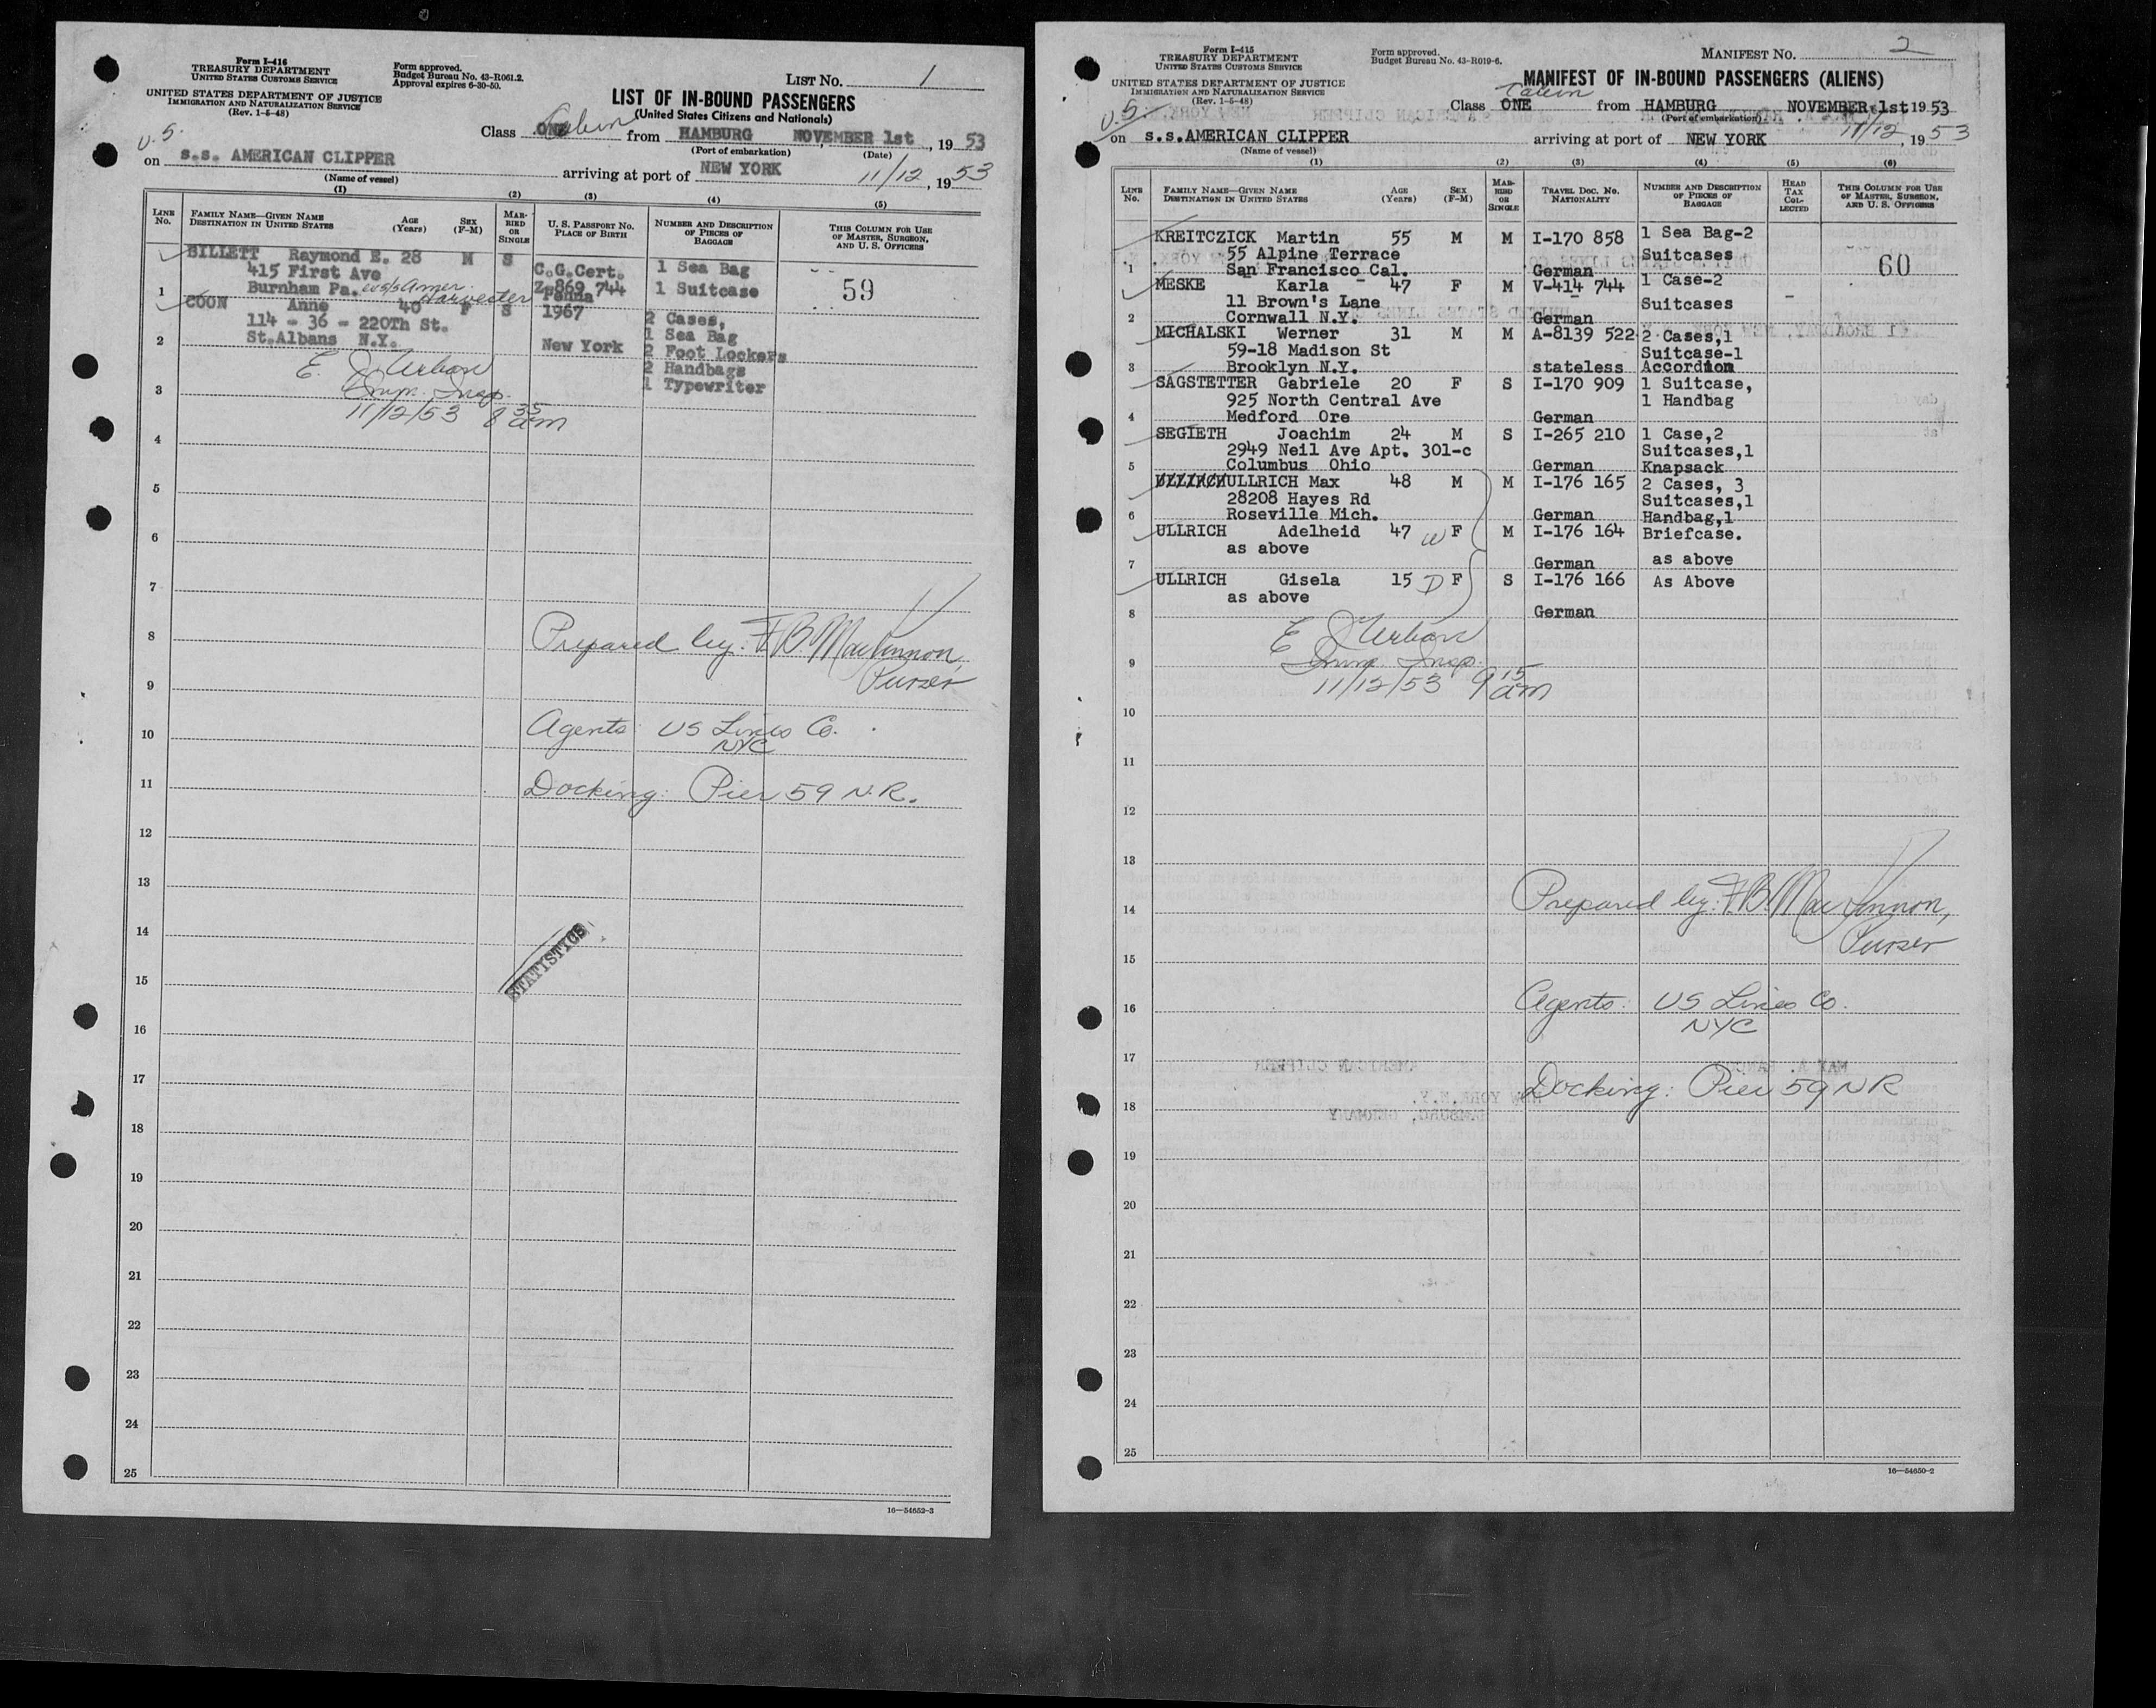 Form I-416
TREASURY DEPARTMENT
UNITED STATES CUSTOMS SERVICE
UNITED STATES DEPARTMENT OF JUSTICE
IMMIGRATION AND NATURALIZATION SERVICE
(Rev. 1-5-48)
Form approved.
Budget Bureau No. 43-R061.2.
Approval expires 6-30-50.
LIST No. 1
LIST OF IN-BOUND PASSENGERS
(United States Citizens and Nationals)
Class ONE Cabin from HAMBURG NOVEMBER 1st, 1953
(Port of embarkation) (Date)
U.S.
on s.s. AMERICAN CLIPPER arriving at port of NEW YORK 11/12, 1953
(Name of vessel)
(1) (2) (3) (4) (5)
LINE No. FAMILY NAME—GIVEN NAME DESTINATION IN UNITED STATES AGE (Years) SEX (F-M) MARRIED OR SINGLE U. S. PASSPORT No. PLACE OF BIRTH NUMBER AND DESCRIPTION OF PIECES OF BAGGAGE THIS COLUMN FOR USE OF MASTER, SURGEON, AND U. S. OFFICERS
BILLETT Raymond E. 28 M S
415 First Ave C.G.Cert. 1 Sea Bag
1 Burnham Pa. ex s/s Amer. Harvester Z-869 744 1 Suitcase 59
Penna
COON Anne 40 F S 1967 2 Cases,
114 - 36 - 220Th St. 1 Sea Bag
2 St.Albans N.Y. New York 2 Foot Lockers
2 Handbags
1 Typewriter
E J Urban
3 Imm. Insp.
11/12/53 8 35 am
4
5
6
7
8 Prepared by: F.B. MacKinnon,
Purser
9
10 Agents: US Lines Co.
NYC
11 Docking: Pier 59 N.R.
12
13
14
STATISTICS
15
16
17
18
19
20
21
22
23
24
25
16—54652-3
Form I-415
TREASURY DEPARTMENT
UNITED STATES CUSTOMS SERVICE
UNITED STATES DEPARTMENT OF JUSTICE
IMMIGRATION AND NATURALIZATION SERVICE
(Rev. 1-5-48)
Form approved.
Budget Bureau No. 43-R019-6.
MANIFEST No. 2
MANIFEST OF IN-BOUND PASSENGERS (ALIENS)
Class ONE Cabin from HAMBURG NOVEMBER 1st 1953
(Port of embarkation)
U.S.
on s.s.AMERICAN CLIPPER arriving at port of NEW YORK 11/12, 1953
(Name of vessel)
(1) (2) (3) (4) (5) (6)
LINE No. FAMILY NAME—GIVEN NAME DESTINATION IN UNITED STATES AGE (Years) SEX (F-M) MARRIED OR SINGLE TRAVEL DOC. No. NATIONALITY NUMBER AND DESCRIPTION OF PIECES OF BAGGAGE HEAD TAX COLLECTED THIS COLUMN FOR USE OF MASTER, SURGEON, AND U. S. OFFICERS
KREITCZICK Martin 55 M M I-170 858 1 Sea Bag-2
55 Alpine Terrace Suitcases
1 San Francisco Cal. German 60
MESKE Karla 47 F M V-414 744 1 Case-2
11 Brown's Lane Suitcases
2 Cornwall N.Y. German
MICHALSKI Werner 31 M M A-8139 522 2 Cases,1
59-18 Madison St Suitcase-1
3 Brooklyn N.Y. stateless Accordion
SAGSTETTER Gabriele 20 F S I-170 909 1 Suitcase,
925 North Central Ave 1 Handbag
4 Medford Ore German
SEGIETH Joachim 24 M S I-265 210 1 Case,2
2949 Neil Ave Apt. 301-c Suitcases,1
5 Columbus Ohio German Knapsack
ULLRICH Max 48 M M I-176 165 2 Cases, 3
28208 Hayes Rd Suitcases,1
6 Roseville Mich. German Handbag,1
ULLRICH Adelheid 47 W F M I-176 164 Briefcase.
as above
7 German as above
ULLRICH Gisela 15 D F S I-176 166 As Above
as above
8 German
E J Urban
9 Imm. Insp.
11/12/53 9 15 am
10
11
12
13
14 Prepared by: F.B. MacKinnon,
Purser
15
16 Agents: US Lines Co.
NYC
17
18 Docking: Pier 59 NR
19
20
21
22
23
24
25
16—54650-2